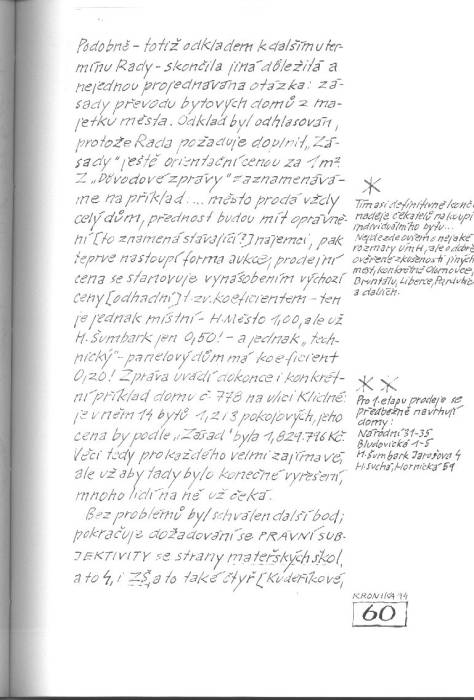 Podobně – totiž odkladem k dalšímu ter-
mínu Rady – skončila jiná důležitá a
nejednou projednávaná otázka: zá-
sady převodu bytových domů z ma-
jetku města. Odklad byl odhlasován,
protože Rada požaduje doplnit „Zá-
sady“ ještě orientační cenou za 1 m².
Z „Důvodové zprávy“ zaznamenává-
me na příklad: ... město prodá vždy
celý dům, přednost budou mít oprávně-
ní [to znamená stávající?] nájemci, pak
teprve nastoupí forma aukce; prodejní
cena se stanovuje vynásobením výchozí
ceny [odhadní] t.zv. koeficientem – ten
je jednak místní – H. Město 1,00, ale už
H. Šumbark jen 0,50! – a jednak „tech-
nický“ – panelový dům má koeficient
0,20! Zpráva uvádí dokonce i konkrét-
ní příklad domu č. 748 na ulici Klidné:
je v něm 14 bytů 1, 2 i 3 pokojových, jeho
cena by podle „Zásad“ byla 1,829.796 Kč.
Věci tedy pro každého velmi zajímavé,
ale už aby tady bylo konečné vyřešení,
mnoho lidí na ně už čeká.
Bez problémů byl schválen další bod;
pokračuje dožadování se PRÁVNÍ SUB-
JEKTIVITY se strany mateřských škol,
a to 4, i ZŠ, a to také čtyř [Kudeříkové,
*
Tím asi definitivně končí
naděje čekatelů na koupi
individuálního bytu...
Nejde zde ovšem o nějaké
rozmary
ověřené zkušenosti jiných
měst, konkrétně Olomouce,
Bruntálu, Liberce, Pardubic
a dalších.
* *
Pro 1. etapu prodeje se
předběžně navrhují
domy:
Národní 31-35
Bludovická 1-5
H. Šumbark Jarošova 4
H. Suchá, Hornická 59
KRONIKA '94
60